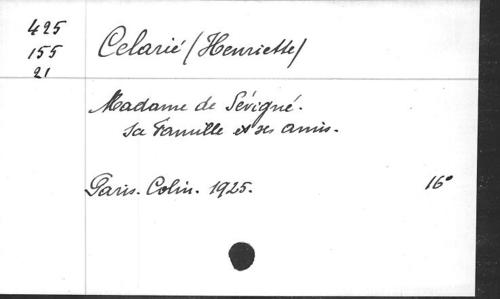 425
155
21
Celarié (Henriette)
Madame de Sévigné.
sa famille et ses amis.
Paris. Colin. 1925. 16°